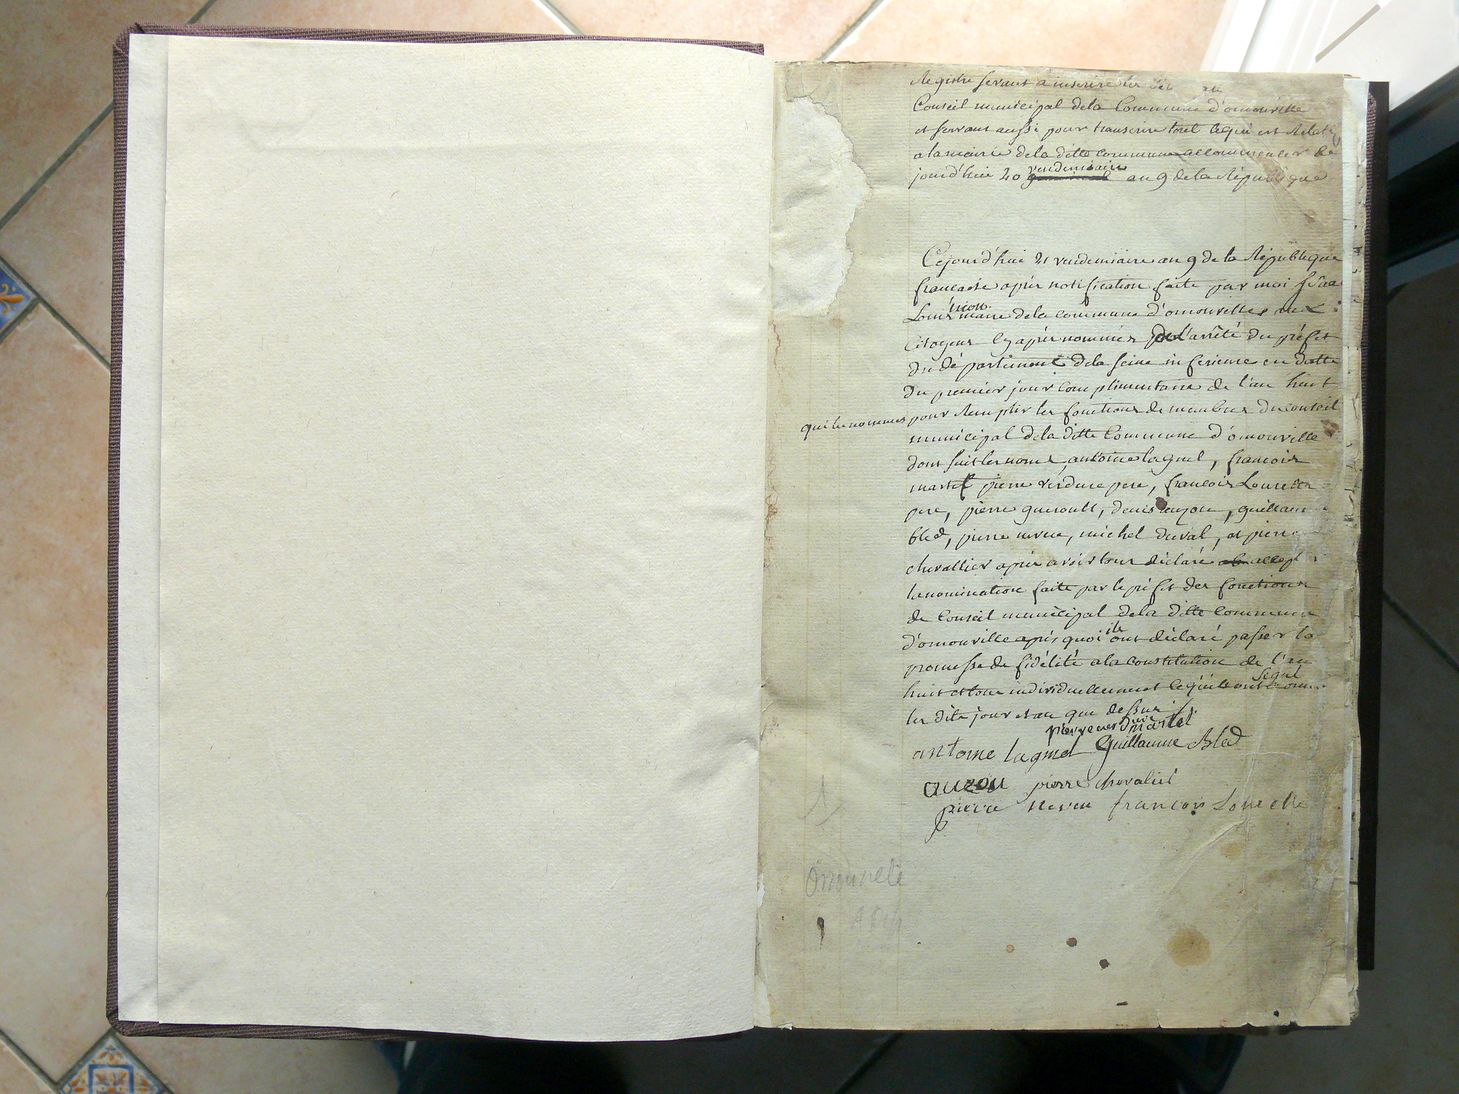 Registre servant a inscrire les
Conseil municipal dela Commune d'omonville
et servant aussi pour transcrire tout cequi est Relatif
alamairie dela ditte commune acommencer le
jourd'huie 20 vendemiaire an 9 dela République
Cejourd'hui 21 vendemiaire an 9 de la République
francaise après notification faite par moi
maire dela commune d'omonville aux
citoyens cy après nommés de l'arrêté du préfet
du département dela seine inferieure en datte
du premier jour complimentaire de l'an huit
qui les nommes pour Remplir les fonctions de membres du conseil
municipal dela ditte Commune d'omonville
dont suit les noms, antoine laguel, francois
martel pierre verdure pere, francois Lourselle
pere, pierre gueroult, denis auzou, guillaume
bled, pierre neveu, michel duval, et pierre
chevallier après avoir tous déclaré accepté
lanomination faite par le préfet des fonctions
de Conseil municipal dela ditte commune
d'omonville après quoi ils ont déclaré passer la
promesse de fidélité ala constitution de l'an
huit et tous individuellement lequels ont signé
les dits jour et an que dessus
pierre verdure martel
antoine laguel Guillaume Bled
auzou pierre chevalié
pierre neveu francois